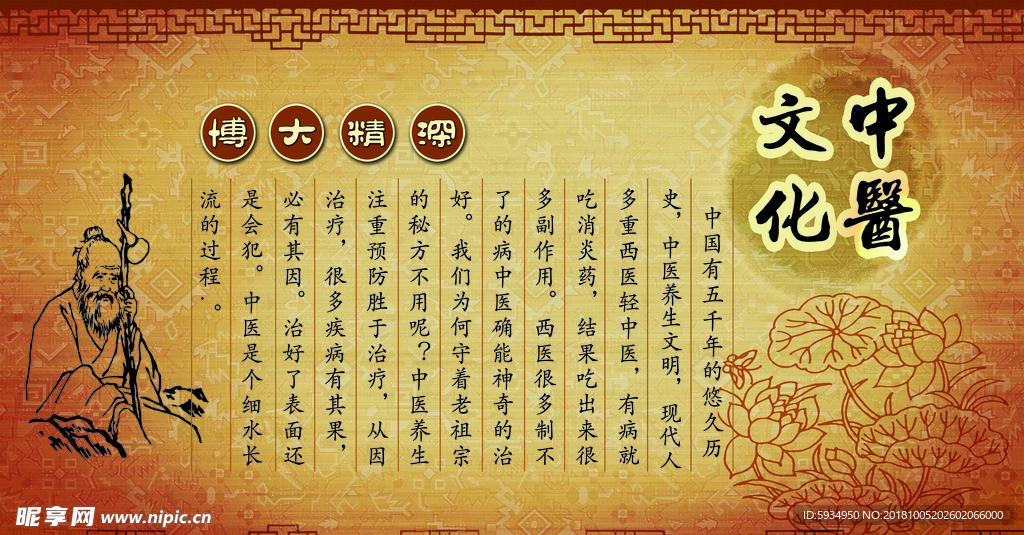 中醫
文化
博大精深
中国有五千年的悠久历
史，中医养生文明，现代人
多重西医轻中医，有病就
吃消炎药，结果吃出来很
多副作用。西医很多制不
了的病中医确能神奇的治
好。我们为何守着老祖宗
的秘方不用呢？中医养生
注重预防胜于治疗，从因
治疗，很多疾病有其果，
必有其因。治好了表面还
是会犯。中医是个细水长
流的过程.。
昵享网 www.nipic.cn
ID:5934950 NO:20181005202602066000